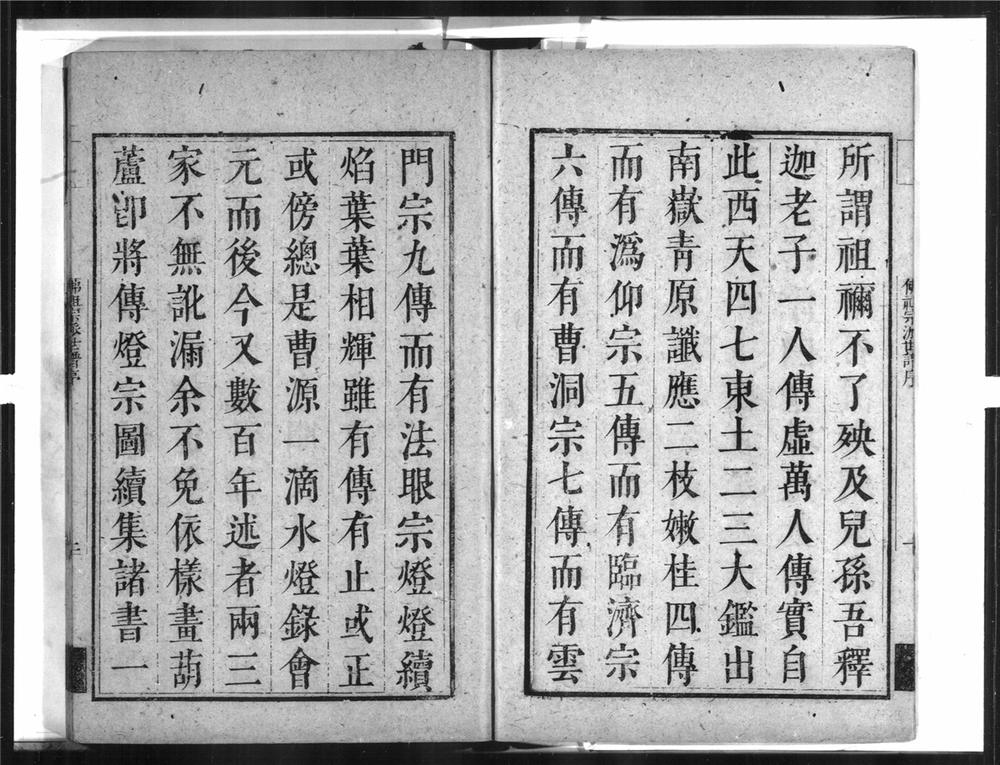 所謂祖禰不了殃及兒孫吾釋
迦老子一人傳虛萬人傳實自
此西天四七東土二三大鑑出
南嶽青原讖應二枝嫩桂四傳
而有溈仰宗五傳而有臨濟宗
六傳而有曹洞宗七傳而有雲
門宗九傳而有法眼宗燈燈續
焰葉葉相輝雖有傳有止或正
或傍總是曹源一滴水燈錄會
元而後今又數百年述者兩三
家不無訛漏余不免依樣畫葫
蘆卽將傳燈宗圖續集諸書一